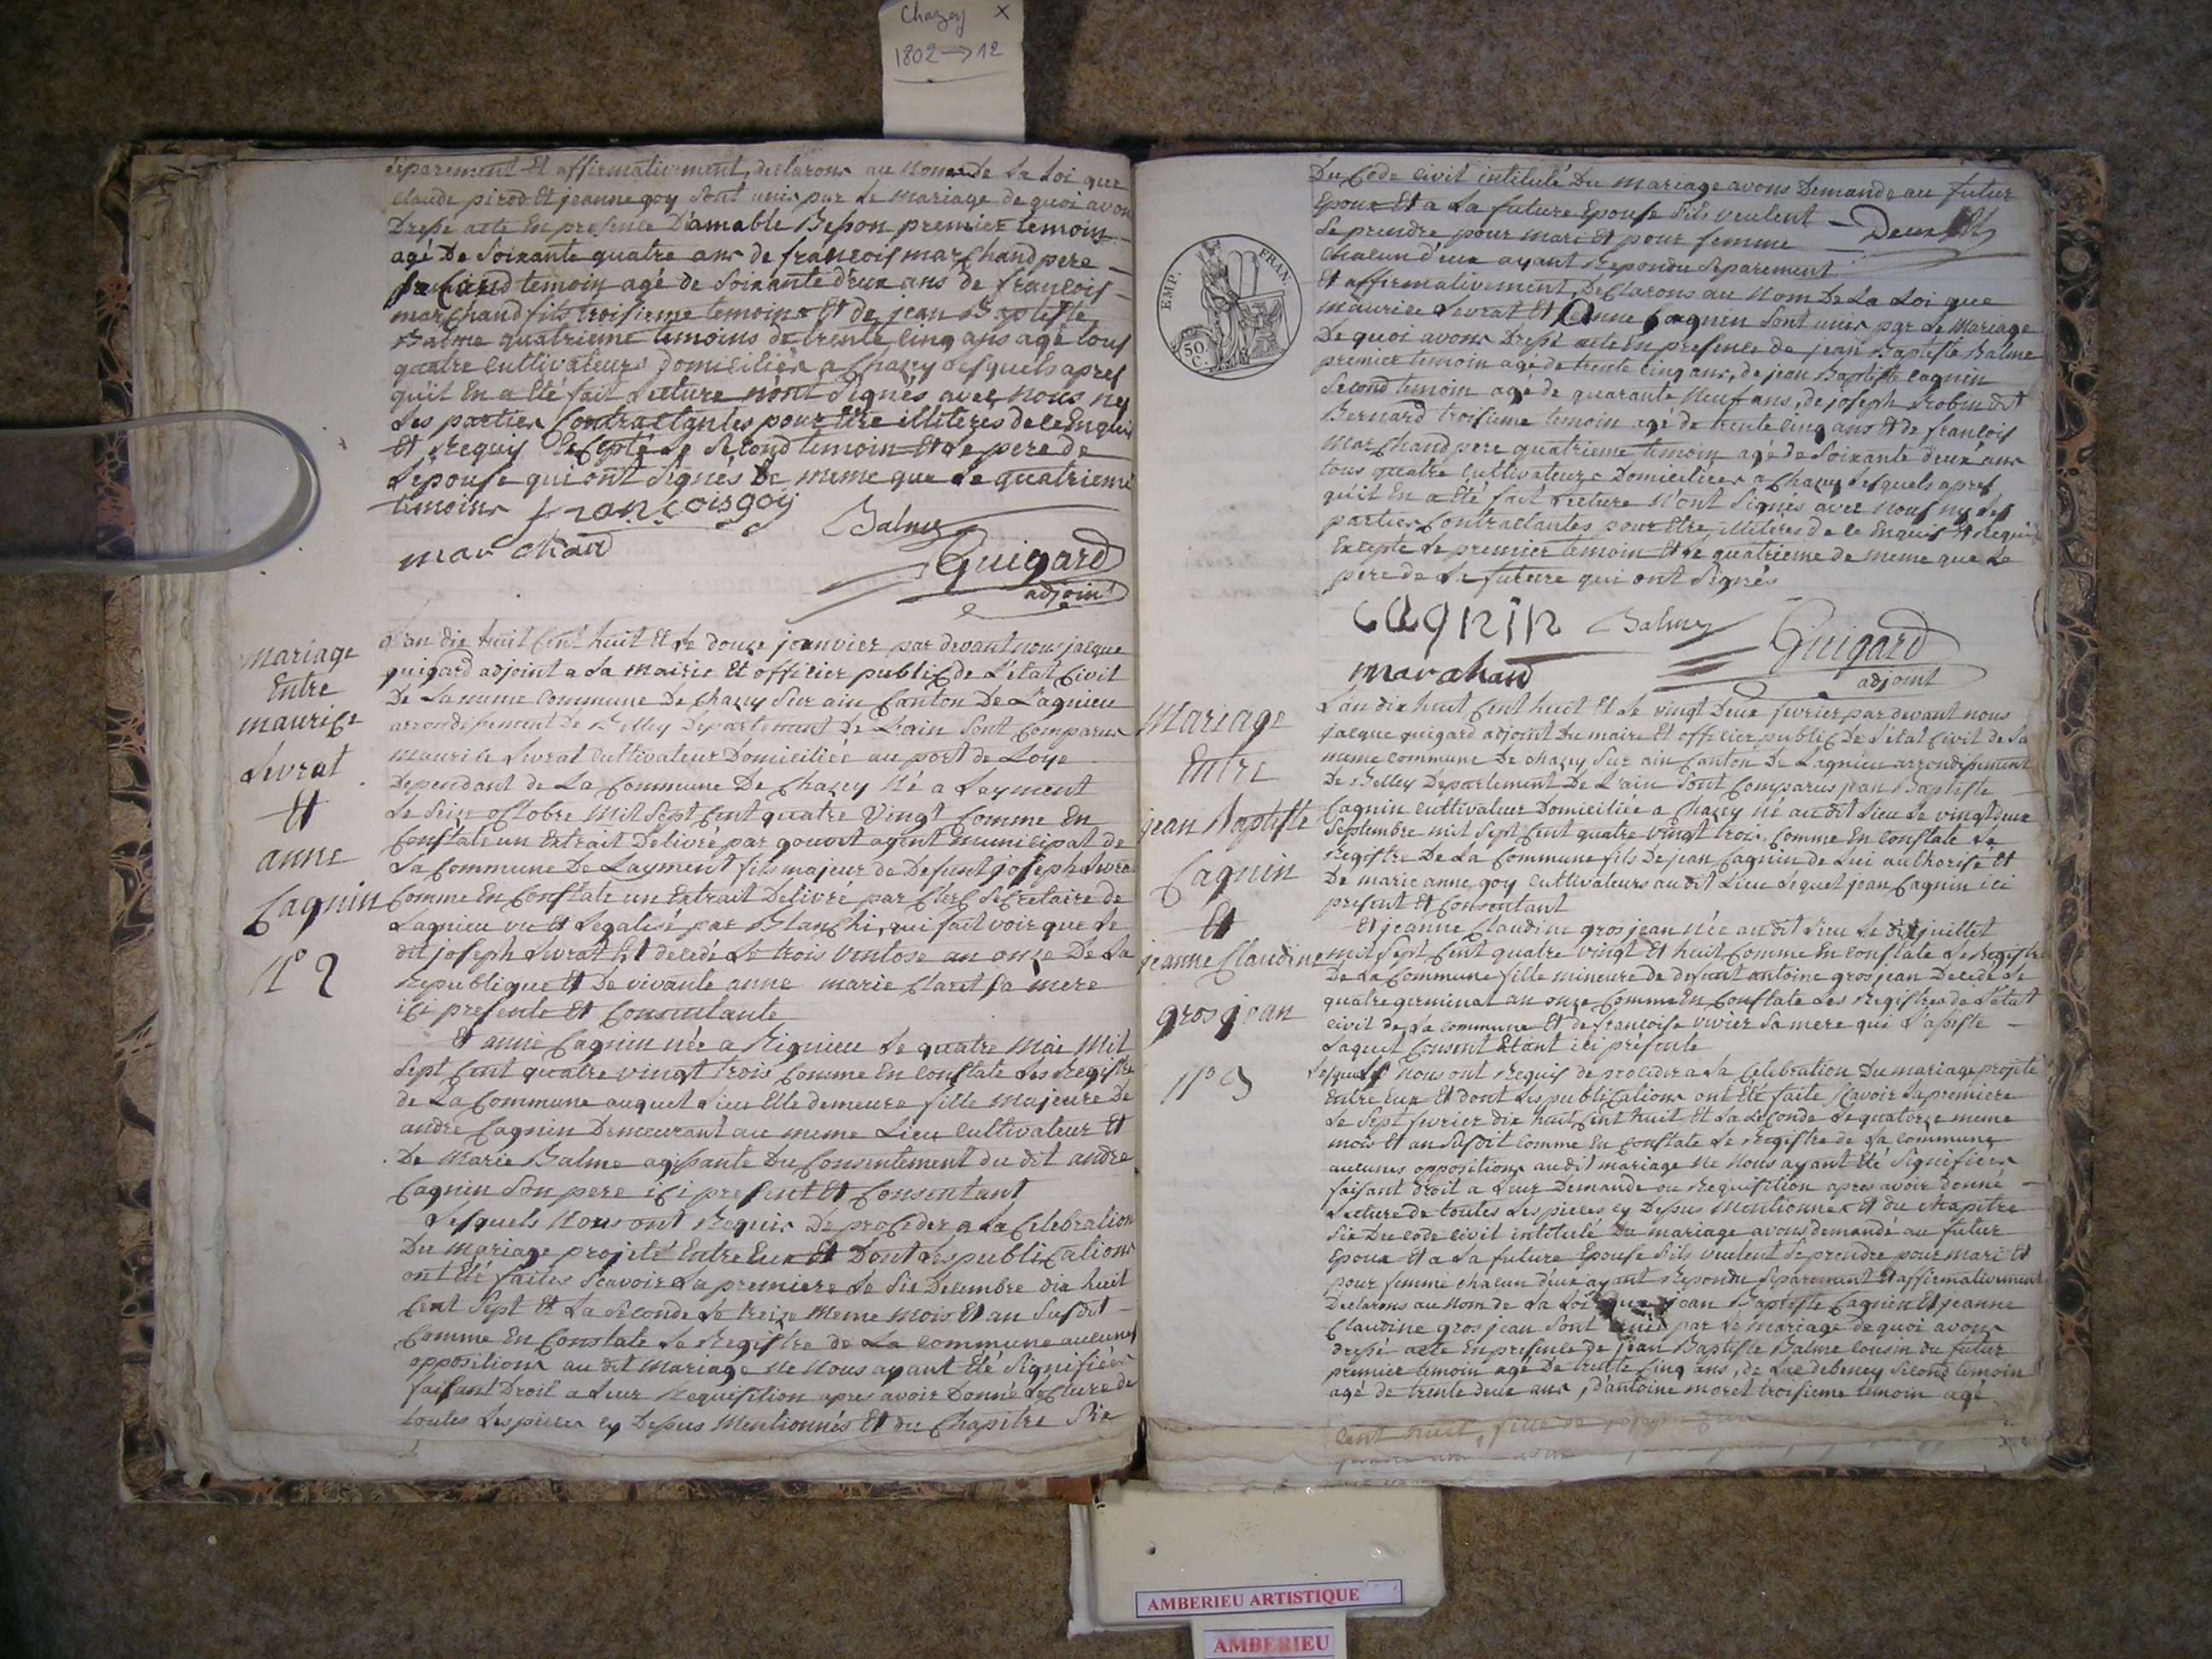 Chazey X
1802 → 12
séparement Et affirmativement, declarons au Nom de La Loi que
claude pirod Et jeanne goy sont unis par Le mariage de quoi avons
Dressé acte En presence D'amable Besson premier temoin
agé De soixante quatre ans de francois marchand pere
second temoin agé de soixante deux ans de francois
marchand fils troisieme temoins Et de jean Baptiste
Balme quatrieme temoins de trente cinq ans agé tous
quatre cultivateurs Domiciliés a Chazey Lesquels apres
qu'il En a Eté fait Lecture n'ont signés avec Nous ny
Les parties Contractantes pour Etre illiteres de ce Enquis
Et Requis Excepté Le second temoin Et Le pere de
L'épouse qui ont signés De meme que Le quatrieme
temoins françois goy
Balme
marchand
Guigard
adjoint
Mariage
Entre
maurice
Livrat
Et
anne
Cagnin
N° 2
L'an dix huit Cent huit Et Le douze janvier par devant nous jacque
guigard adjoint a La Mairie Et officier public de L'état Civil
De La meme Commune De Chazey sur ain Canton De Lagnieu
arrondissement de Belley Departement De L'ain sont Comparus
Maurice Livrat Cultivateur Domiciliée au port de Loye
Dependant de La Commune De Chazey Né a Leyment
Le seize octobre Mil sept Cent quatre Vingt Comme En
Constate un Extrait Délivré par gouvet agent Municipal de
La Commune De Layment fils majeur de Defunt joseph Livrat
Comme En Constate un Extrait Delivré par Clerc secretaire de
Lagnieu vu Et Legalisé par Blanchi, qui fait voir que Le
dit joseph Livrat Est decedé Le trois Ventose an onze De La
Republique Et De vivante anne marie Claret sa mere
ici presente Et Consentante
Et anne Cagnin née a Rignieu Le quatre Mai Mil
sept Cent quatre vingt trois Comme En Constate Les Registre
de La Commune auquel Lieu Elle demeure fille Majeure De
andre Cagnin Demeurant au meme Lieu Cultivateur Et
De Marie Balme agissante Du Consentement du dit andre
Cagnin son pere ici present Et Consentant
Lesquels Nous ont Requis De proceder a La Celebration
Du mariage projeté Entre Eux Et Dont Les publications
ont Eté faites scavoir La premiere Le six Decembre dix huit
Cent sept Et La seconde Le treize Meme mois Et an susdit
Comme En Constate Le Registre de La Commune aucunes
oppositions au dit mariage Ne Nous ayant Eté signifiées
faisant Droit a Leur Requisition apres avoir Donné Lecture de
toutes Les pieces cy Dessus Mentionnés Et du Chapitre six
Du Code civil intitulé Du mariage avons Demande au futur
Epoux Et a La future Epouse s'ils veulent
se prendre pour mari Et pour femme
Chacun d'eux ayant Repondu separement
Et affirmativement, Declarons au Nom De La Loi que
maurice Livrat Et anne Cagnin sont unis par Le Mariage
De quoi avons Dressé acte En presence de jean Baptiste Balme
premier temoin agé de trente cinq ans, de jean Baptiste cagnin
second temoin agé de quarante Neuf ans, de joseph Robin dit
Bernard troisieme temoin agé de trente cinq ans Et de francois
Marchand pere quatrieme temoin agé de soixante deux ans
tous quatre Cultivateurs Domiciliés a Chazey Lesquels apres
qu'il En a Eté fait Lecture N'ont signés avec Nous ny Les
parties Contractantes pour Etre illiteres de ce Enquis Et Requis
Excepté Le premier temoin Et Le quatrieme de meme que Le
pere de La future qui ont signés
EMP. FRAN.
50
C.
cagnin
Balme
Guigard
marchand
adjoint
Mariage
Entre
jean Baptiste
Cagnin
Et
jeanne Claudine
gros jean
N° 3
L'an dix huit Cent huit Et Le vingt Deux fevrier par devant nous
jacque guigard adjoint Du maire Et officier public De L'état Civil de La
meme commune De chazey sur ain Canton De Lagnieu arrondissement
De Belley Departement De L'ain sont Comparus jean Baptiste
Cagnin cultivateur Domiciliée a Chazey Né au dit Lieu Le vingt deux
septembre mil sept Cent quatre vingt trois Comme En Constate Le
Registre De La Commune fils De jean Cagnin de Lui authorisé Et
De marie anne goy cultivateurs au dit Lieu Lequel jean Cagnin ici
present Et Consentant
Et jeanne Claudine gros jean née au dit Lieu Le dix juillet
mil sept Cent quatre vingt Et huit Comme En Constate Le Registre
De La Commune fille mineure de defunt antoine gros jean Decedé Le
quatre germinal an onze Comme En Constate Les Registres de L'état
civil de La commune Et de francoise vivier sa mere qui L'assiste
Laquel Consent Etant ici présente
Lesquels Nous ont Requis de proceder a La Celebration Du mariage projeté
Entre Eux Et dont Les publications ont Eté faite scavoir La premiere
Le sept fevrier dix huit Cent huit Et La seconde Le quatorze meme
mois Et an susdit Comme En Constate Le Registre de La commune
aucunes oppositions au dit mariage Ne Nous ayant Eté signifiées
faisant droit a Leur Demande ou Requisition apres avoir donné
Lecture de toutes Les pieces cy Dessus Mentionnés Et du Chapitre
six Du code civil intitulé Du mariage avons demandé au futur
Epoux Et a La future Epouse s'ils veulent se prendre pour mari Et
pour femme chacun deux ayant Repondu separement Et affirmativement
Declarons au Nom de La Loi que jean Baptiste Cagnin Et jeanne
Claudine gros jean sont unis par Le mariage De quoi avons
dressé acte En presence de jean Baptiste Balme cousin du futur
premier temoin agé De trente Cinq ans, de Luc debeney second temoin
agé de trente deux ans, d'antoine moret troisieme temoin agé
cent huit, fille de
AMBERIEU ARTISTIQUE
AMBERIEU